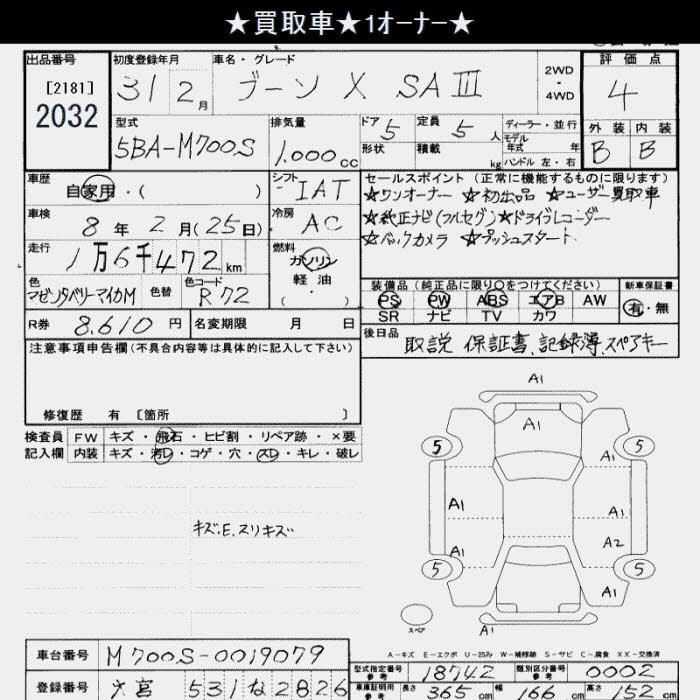 ★買取車★1ｵｰﾅｰ★
出品番号 初度登録年月 車名・グレード 評価点
[2181] 2032 31 2月 ブーン X SAⅢ 2WD・4WD 4
型式 排気量 ドア 5 定員 5人 ディーラー・並行 外装 内装
5BA-M700S 1.000cc 形状 積載 kg モデル年式 年 ハンドル 左・右 B B
車歴 シフト セールスポイント (正常に機能するものに限ります)
自家用・( ) IAT ★ワンオーナー ★初出品 ★ユーザー買取車
車検 冷房 ★純正ナビ(フルセグ)★ドライブレコーダー
8年2月(25日) AC ★バックカメラ ★プッシュスタート
走行 燃料
1万6千472km ガソリン
色 色替 色コード 軽油 装備品 (純正品に限り○をつけてください) 新車保証書
マゼンタベリーマイカM R72 ・( ) PS PW ABS エアB AW 有・無
SR ナビ TV カワ
R券 8.610円 名変期限 月 日 後日品 取説 保証書、記録簿、スペアキー
注意事項申告欄(不具合内容等は具体的に記入して下さい)
修復歴 有 〔箇所 〕
検査員 FW キズ・飛石・ヒビ割・リペア跡・×要
記入欄 内装 キズ・汚レ・コゲ・穴・スレ・キレ・破レ
A1
A1
5 5
A1
A1 A1
A1 A2
5 A1 5
スペア A1
キズ.E.スリキズ
A-キズ E-エクボ U-凹み W-補修跡 S-サビ C-腐食 XX-交換済
車台番号 M700S-0019079 型式指定番号 参考 18742 類別区分番号 参考 0002
登録番号 大宮 531 な 2826 車庫証明用 参考 長さ 365cm 幅 166cm 高さ 152cm